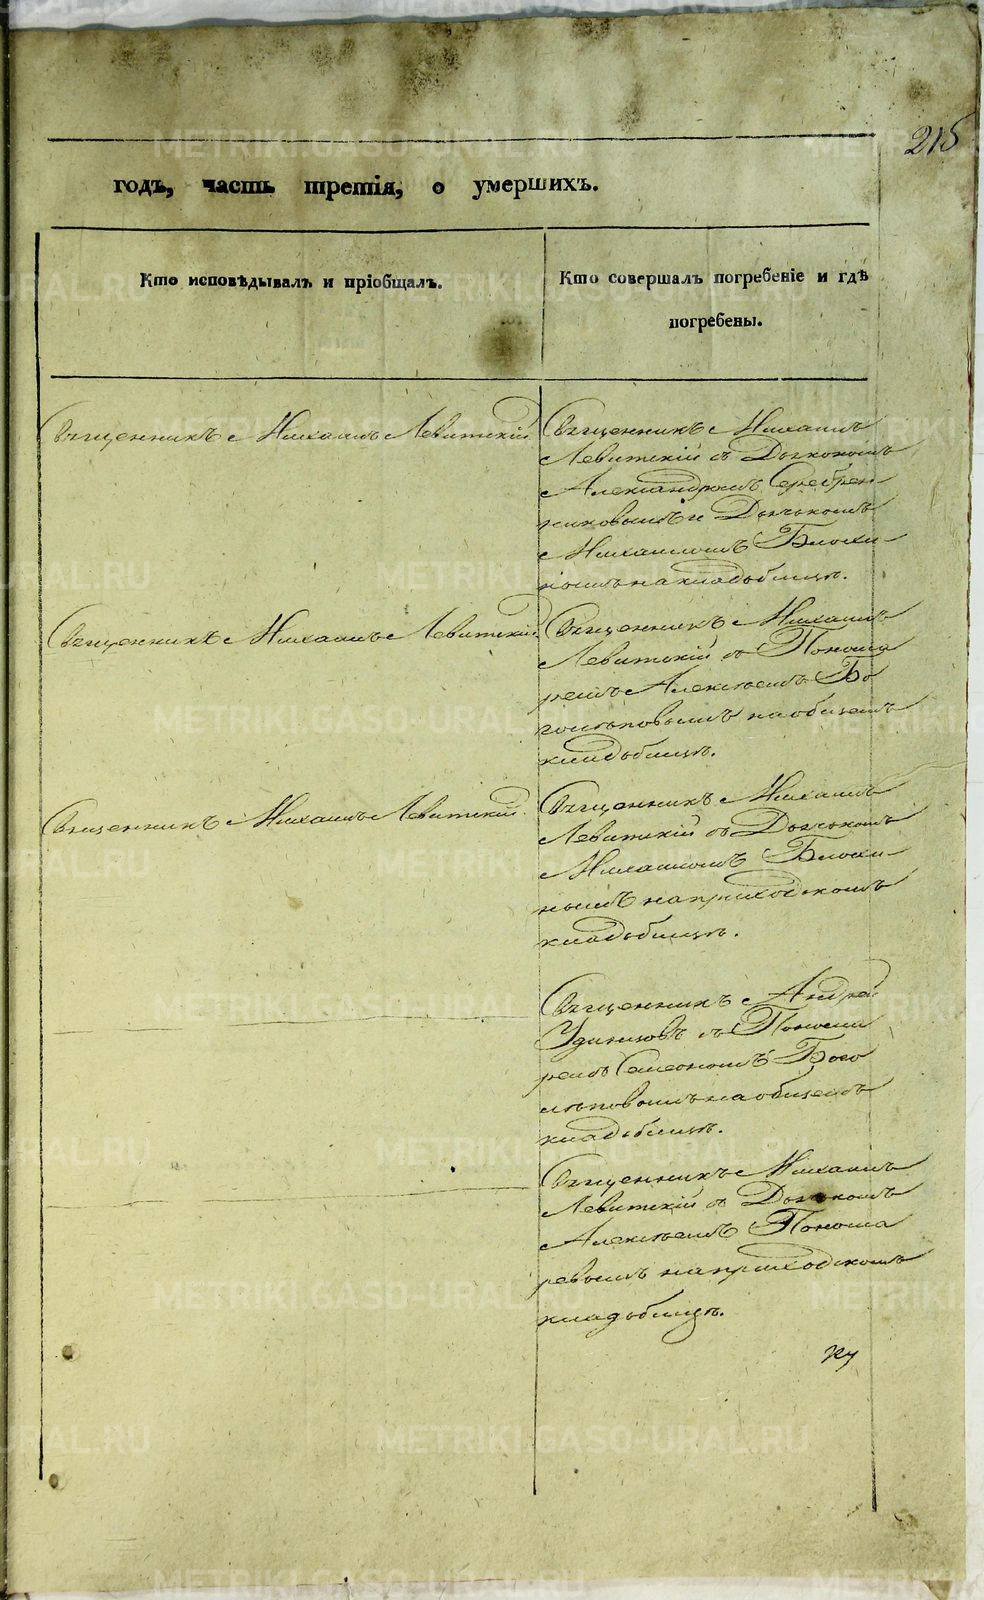 215
годъ, часть третія, о умершихъ.
Кто исповѣдывалъ и пріобщалъ.
Кто совершалъ погребеніе и гдѣ
погребены.
Священникъ Михаилъ Левитскій
Священникъ Михаилъ
Левитскій съ Дьякономъ
Александромъ Серебрен-
никовымъ и Дьячкомъ
Михаиломъ Блохи-
нымъ на кладбищѣ.
Священникъ Михаилъ Левитскій
Священникъ Михаилъ
Левитскій съ Понома
ремъ Алексѣемъ Бо
голѣповымъ на общемъ
кладбищѣ.
Священникъ Михаилъ Левитскій
Священникъ Михаилъ
Левитскій съ Дьячкомъ
Михаиломъ Блохи-
нымъ на приходскомъ
кладбищѣ.
Священникъ Андрей
Удинцовъ съ Понома
ремъ Семеономъ Бого
лѣповымъ на общемъ
кладбищѣ.
Священникъ Михаилъ
Левитскій съ Дьячкомъ
Алексѣемъ Понома
ревымъ на приходскомъ
кладбищѣ.
METRIKI.GASO-URAL.RU